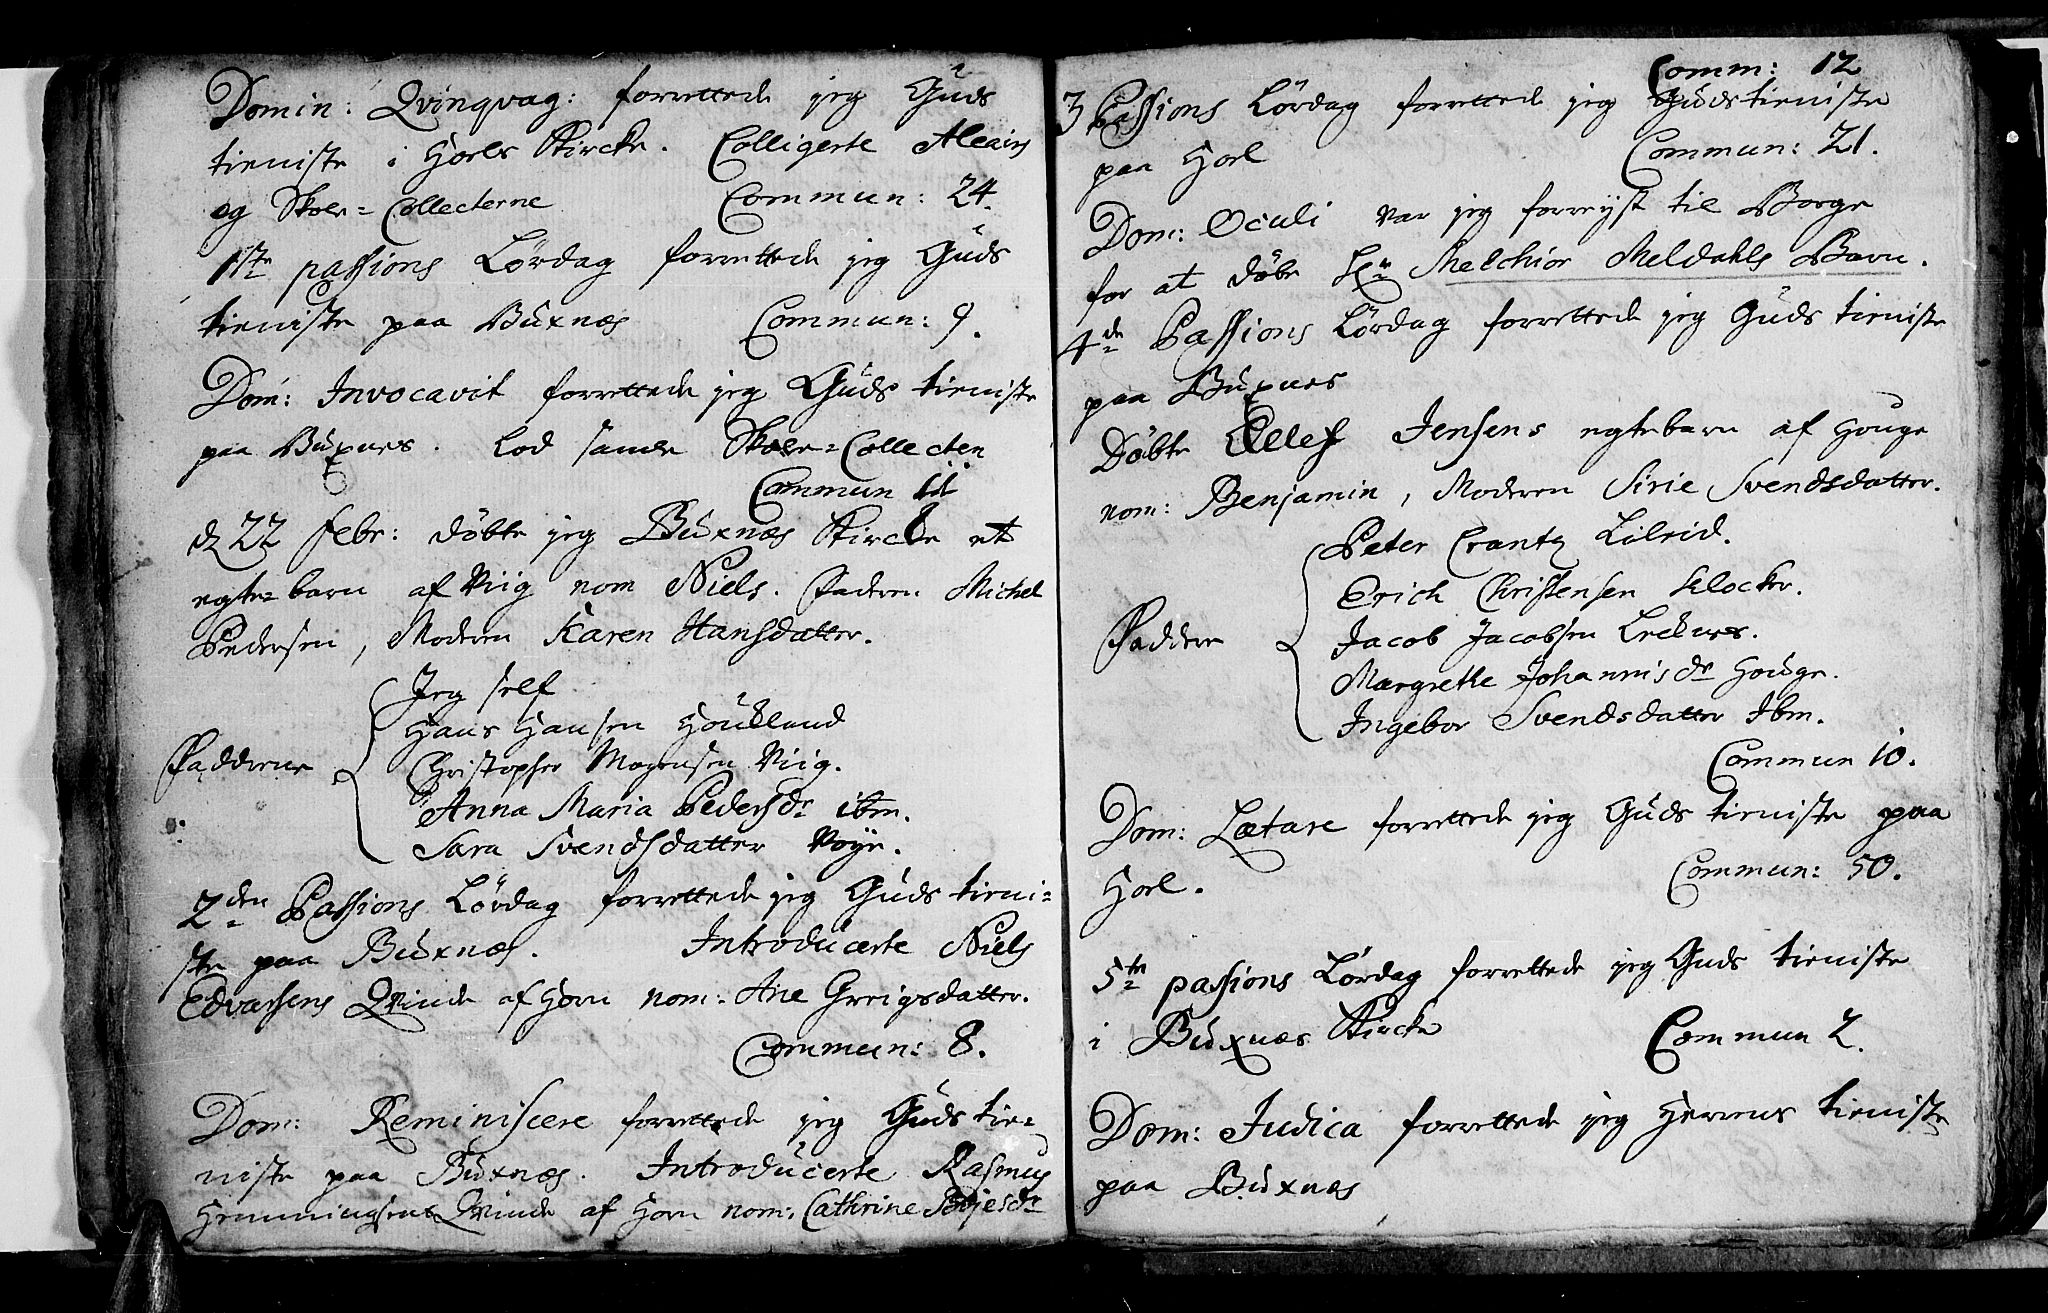 Domin: Qvinqvag: forrettede jeg Guds
tieniste i Horls Kircke. Colligerte
og Skole=Collecterne Commun: 24.
1ste passions Lördag forrettede jeg Guds
tieniste paa Buxnæs Commun: 9.
Dom: Invocavit forrettede jeg Guds tieniste
paa Buxnes. Lod samle Skole=Collecten
Commun 11
d 22 Febr: döbte jeg Buxnæs Kircke et
egte=barn af Viig nom Niels. Faderen Michel
Pedersen, Moderen Karen Hansdatter.
Jeg self
Hans Hansen Houkland
Fadderne Christopher Mogensen Viig.
Anna Maria Pedersdr ibm.
Sara Svendsdatter Vöye.
2den Passions Lördag forrettede jeg Guds tieni=
ste paa Buxnæs. Introducerte Niels
Edvarsens Qvinde af Horn nom: Ane Greigsdatter.
Commun: 8.
Dom: Reminiscere forrettede jeg Guds tie=
niste paa Buxnæs. Introducerte Rasmus
Henningsens Qvinde af Horn nom: Cathrine Böjesdr
Comm: 12
3 Passions Lördag forrettede jeg Gudstieniste
paa Horl Commun: 21.
Dom: Oculi var jeg forreyst til Borge
for at döbe Hr Melchior Meldahls Barn.
4de Passions Lördag forrettede jeg Guds tieniste
paa Buxnes
Döbte Ellef Jensens egtebarn af Houge
nom: Benjamin, Moderen Sirie Svendsdatter.
Peter Crantz Lileid.
Erich Christensen Klocker.
Faddere Jacob Jacobsen Leknes.
Margrethe Johannisdr Houge.
Ingebor Svendsdatter Ibm.
Commun 10.
Dom: Lætare forrettede jeg Guds tieniste paa
Horl. Commun: 50.
5te passions Lördag forrettede jeg Guds tieniste
i Buxnæs Kircke Commun 2.
Dom: Judica forrettede jeg Herrens tieniste
paa Buxnæs